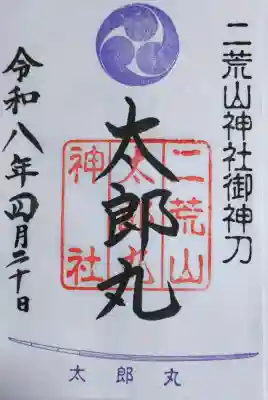 二荒山神社御神刀
太郎丸
二荒山
太郎丸
神社
令和八年四月二十日
太郎丸